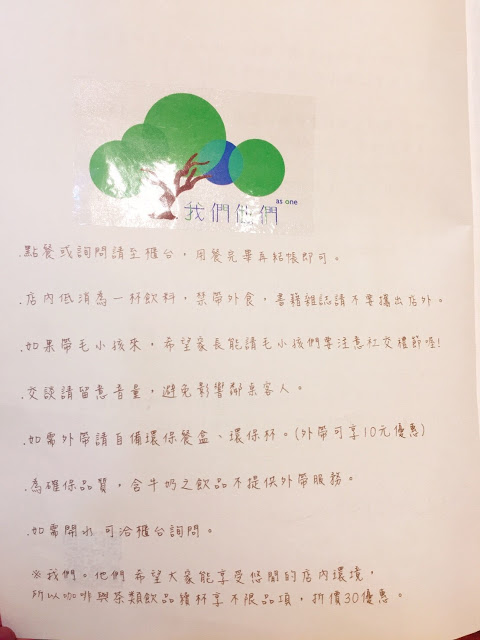 as one
我們他們
.點餐或詢問請至櫃台，用餐完畢再結帳即可。
.店內低消為一杯飲料，禁帶外食，書籍雜誌請不要攜出店外。
.如果帶毛小孩來，希望家長能請毛小孩們要注意社交禮節喔!
.交談請留意音量，避免影響鄰桌客人。
.如需外帶請自備環保餐盒、環保杯。(外帶可享10元優惠)
.為確保品質，含牛奶之飲品不提供外帶服務。
.如需開水 可洽櫃台詢問。
※我們。他們 希望大家能享受悠閒的店內環境，
所以咖啡與茶類飲品續杯享不限品項，折價30優惠。